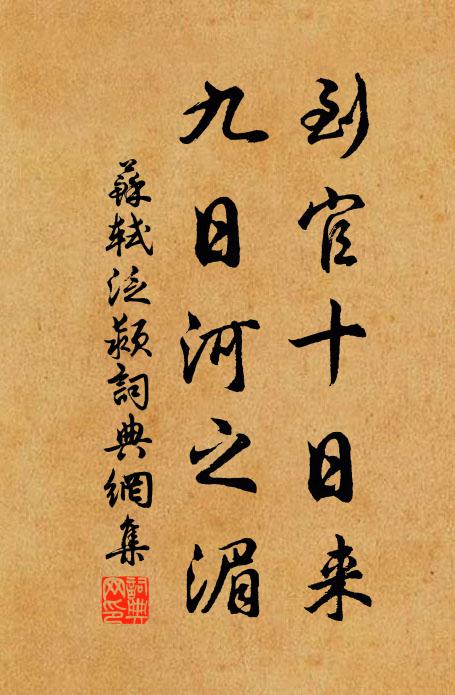 到官十日来
九日河之湄
蘇軾泛潁詞典網集
詞典網印